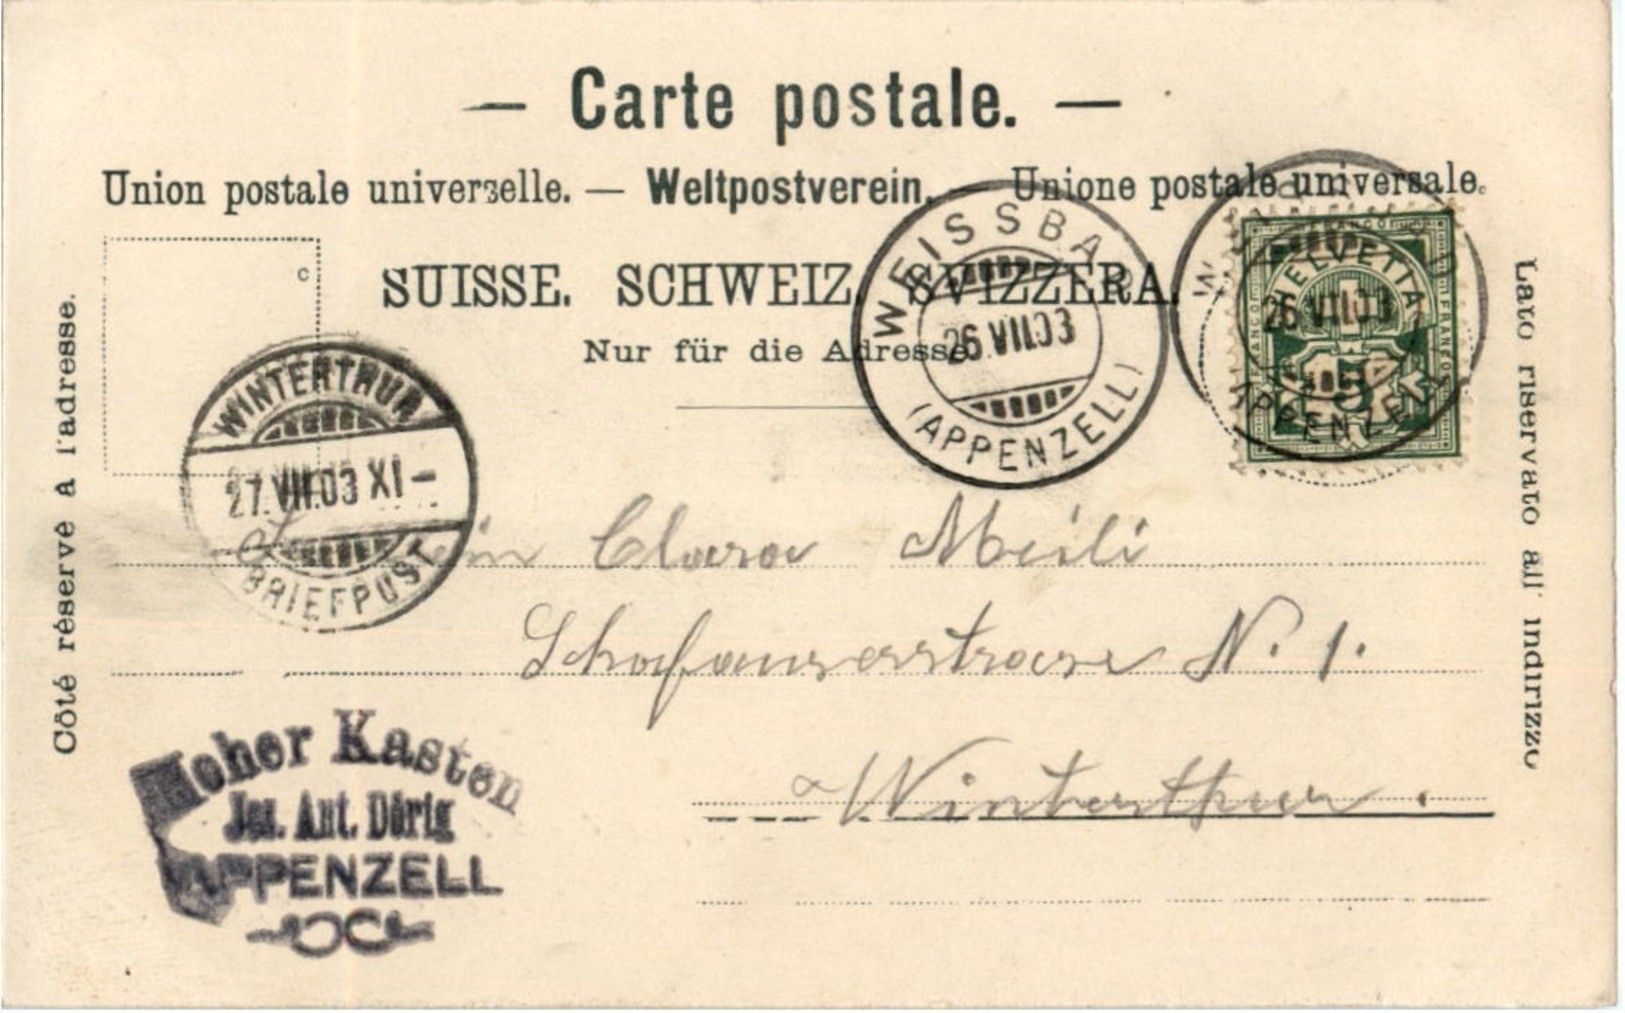 — Carte postale. —
Union postale universelle. — Weltpostverein. — Unione postale universale.
c
SUISSE. SCHWEIZ. SVIZZERA.
Nur für die Adresse.
Côté réservé à l'adresse.
Lato riservato all' indirizzo
WEISSBAD
26 VII.03
(APPENZELL)
26 VII.03
(APPENZELL)
HELVETIA
FRANCO
5
WINTERTHUR
27.VII.03 XI-
BRIEFPOST
Clara Meili
Schafauserstrasse N. 1.
Winterthur.
Hoher Kasten
Jos. Ant. Dörig
APPENZELL